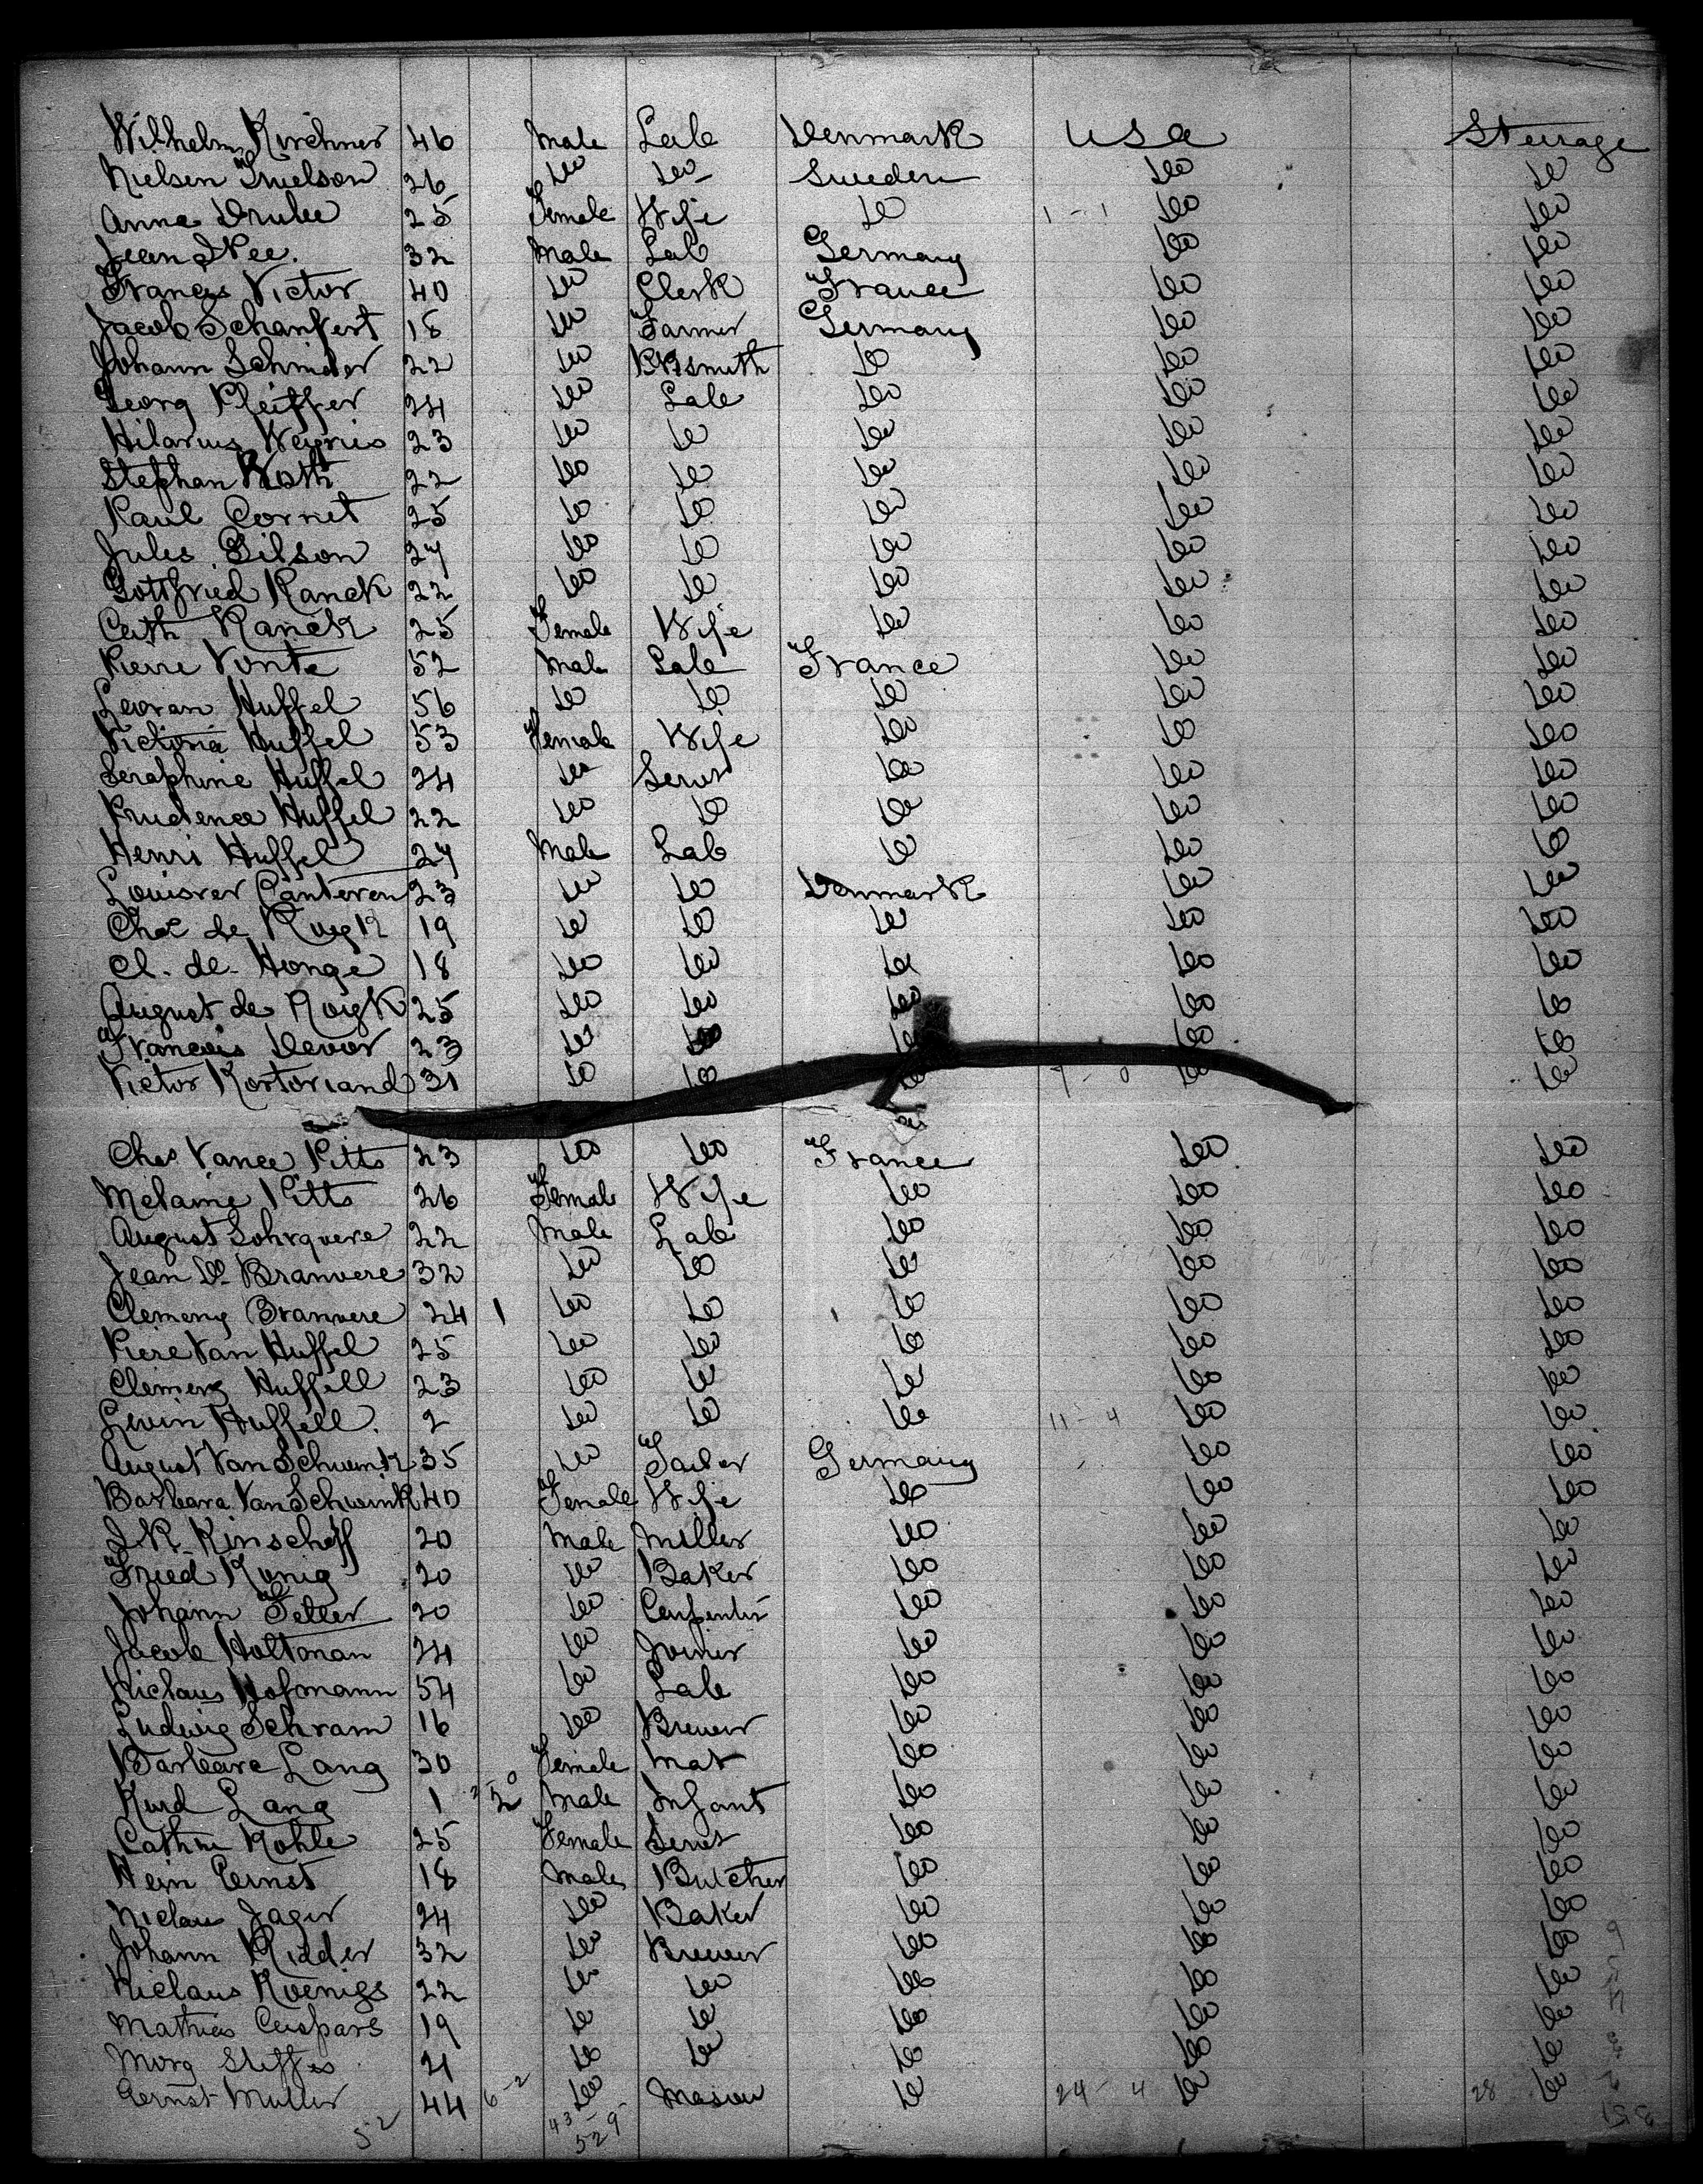 Wilhelm Kirchner 46 Male Lab Denmark USA Steerage
Nielsen Truelson 26 do do Sweden do do
Anna Drulee 25 Female Wife do 1 - 1 do do
Jean Nee. 32 Male Lab Germany do do
Francis Victor 40 do Clerk France do do
Jacob Schanfert 18 do Farmer Germany do do
Johann Schnider 22 do Bksmith do do do
Georg Pfeiffer 24 do Lab do do do
Hilarius Weyries 23 do do do do do
Stephan Roth 22 do do do do do
Paul Cornet 25 do do do do do
Jules Gilson 27 do do do do do
Gottfried Ranck 22 do do do do do
Cath Ranck 25 Female Wife do do do
Pierre Vonte 52 Male Lab France do do
Levran Huffel 56 do do do do do
Victoria Huffel 53 Female Wife do do do
Seraphine Huffel 24 do Servt do do do
Prudence Huffel 22 do do do do do
Henri Huffel 27 Male Lab do do do
Louisver Canteren 23 do do Denmark do do
Chas de 19 do do do do do
Cl. de Honge 18 do do do do do
August de Roigk 25 do do do do do
Francois Devor 23 do do do do do
Victor Kostoriand 31 do do do do do
do
Chas Vance Pitts 23 do do France do do
Melanie Pitts 26 Female Wife do do do
August Lohrquere 22 Male Lab do do do
Jean De Branvere 32 do do do do do
Clemeng Branvere 24 1 do do do do do
Piere Van Huffel 25 do do do do do
Clemeng Huffell 23 do do do do do
Levin Huffell. 2 do do do 11 - 4 do do
August Van Schwink 35 do Tailor Germany do do
Barbara Van Schwink 40 Female Wife do do do
J.R. Kinschoff 20 Male Miller do do do
Fried Konig 20 do Baker do do do
Johann Fetter 20 do Carpenter do do do
Jacob Holtman 24 do Joiner do do do
Niclaus Hofmann 54 do Lab do do do
Ludwig Schram 16 do Brewer do do do
Barbara Lang 30 Female Mat do do do
Kurd Lang 1 Male Infant do do do
Cathne Kohle 25 Female Servt do do do
Hein Ernst 18 Male Butcher do do do
Niclaus Jager 24 do Baker do do do
Johann Ridder 32 do Brewer do do do
Niclaus Koenigs 22 do do do do do
Mathias Caspars 19 do do do do do
Morg Steffes 21 do do do do do
Ernst Muller 44 6-2 do Mason do 24 - 4 do 28 do
52 43 - 9
52